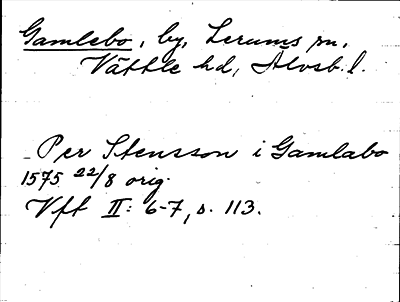 Gamlebo, by, Lerums sn,
Vättle hd, Älvsb. l.
Per Stensson i Gamlabo
1575 22/8 orig.
Vft II: 6-7, s. 113.